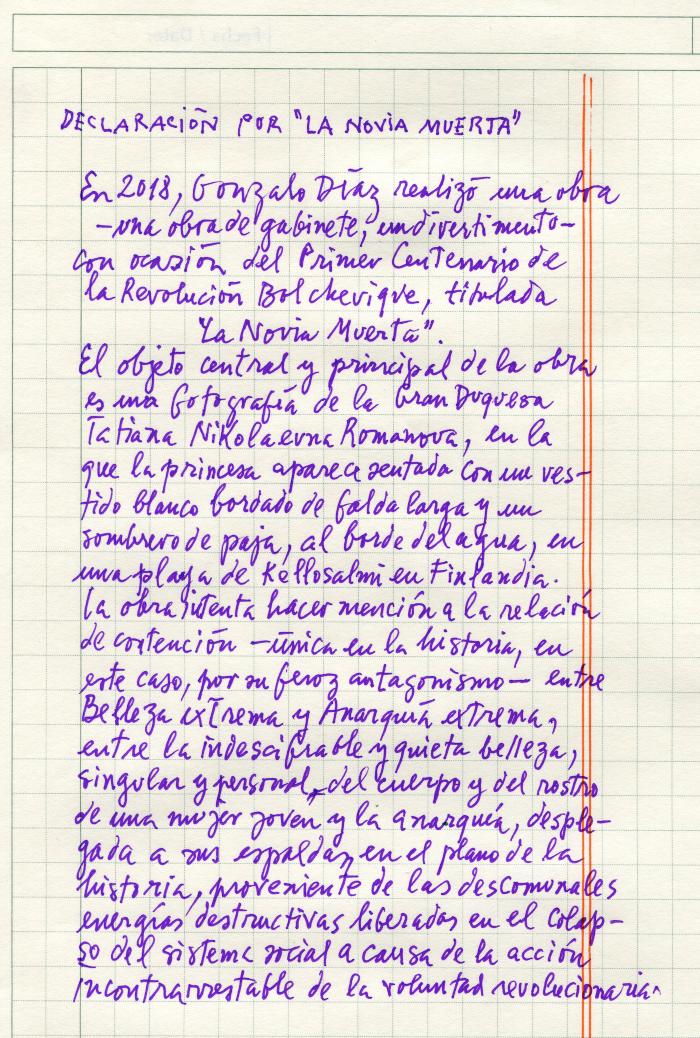 DECLARACIÓN POR "LA NOVIA MUERTA"
En 2018, Gonzalo Díaz realizó una obra
—una obra de gabinete, un divertimento—
con ocasión del Primer Centenario de
la Revolución Bolchevique, titulada
"La Novia Muerta".
El objeto central y principal de la obra
es una fotografía de la Gran Duquesa
Tatiana Nikolaevna Romanova, en la
que la princesa aparece sentada con un ves-
tido blanco bordado de falda larga y un
sombrero de paja, al borde del agua, en
una playa de Kellosalmi en Finlandia.
La obra intenta hacer mención a la relación
de contención —única en la historia, en
este caso, por su feroz antagonismo— entre
Belleza extrema y Anarquía extrema,
entre la indescifrable y quieta belleza,
singular y personal, del cuerpo y del rostro
de una mujer joven y la anarquía, desple-
gada a sus espaldas, en el plano de la
historia, proveniente de las descomunales
energías destructivas liberadas en el colap-
so del sistema social a causa de la acción
incontrarrestable de la voluntad revolucionaria.